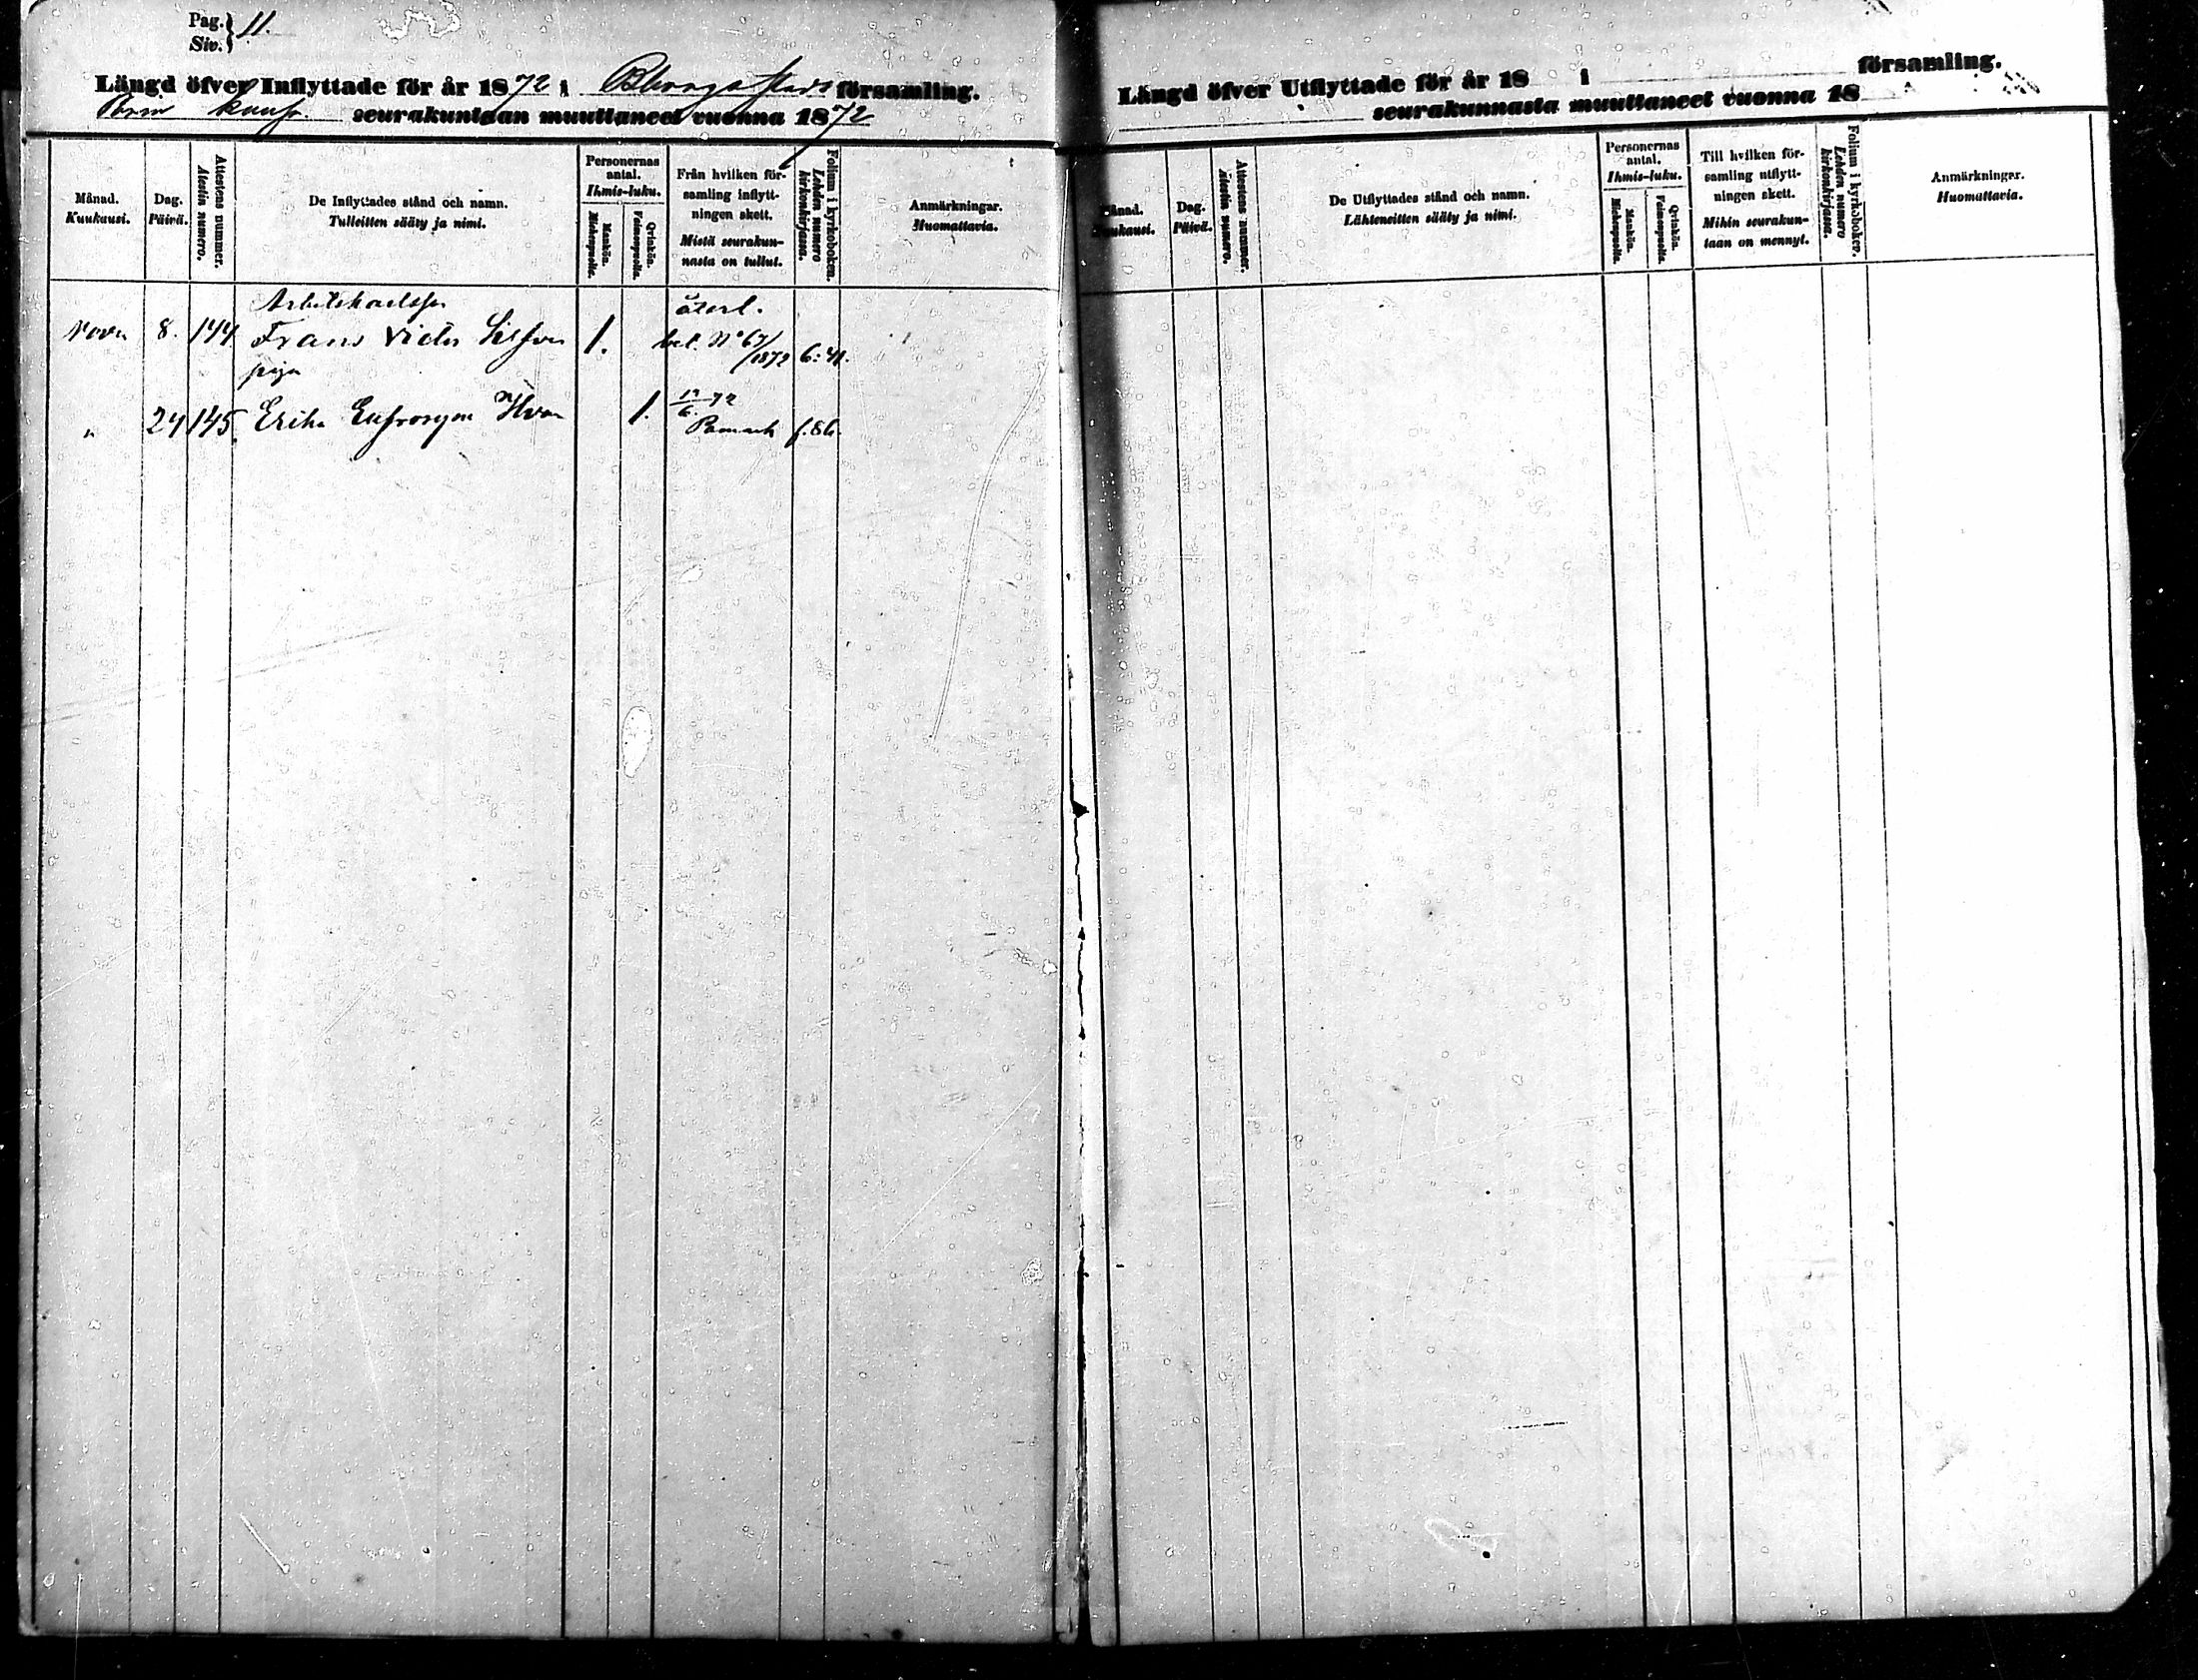 Pag. } 11.
Siv.
Längd öfver Inflyttade för år 1872 i Bborgs stads församling.
Porin kaup. seurakuntaan muuttaneet vuonna 1872
Månad.
Kuukausi.
Dag.
Päivä.
Attestens nummer.
Atestin numero.
De Inflyttades stånd och namn.
Tulleitten sääty ja nimi.
Personernas
antal.
Ihmis-luku.
Mankön.
Miehenpuolta.
Qvinkön.
Vaimonpuolta.
Från hvilken för-
samling inflytt-
ningen skett.
Mistä seurakun-
nasta on tullut.
Folium i kyrkoboken.
Lehden numero
kirkonkirjassa.
Anmärkningar.
Huomattavia.
Arbetskarlsson
Novr 8. 144 Frans Victor 1. återl.
bet. No 67/1872 6:41.
piga
" 24 145. Erika Eufrosyne 1. 12/6.72
Pomark f.86.
Längd öfver Utflyttade för år 18 i församling.
seurakunnasta muuttaneet vuonna 18
Månad.
Kuukausi.
Dag.
Päivä.
Attestens nummer.
Atestin numero.
De Utflyttades stånd och namn.
Lähteneitten sääty ja nimi.
Personernas
antal.
Ihmis-luku.
Mankön.
Miehenpuolta.
Qvinkön.
Vaimonpuolta.
Till hvilken för-
samling utflytt-
ningen skett.
Mihin seurakun-
taan on mennyt.
Folium i kyrkoboken.
Lehden numero
kirkonkirjassa.
Anmärkningar.
Huomattavia.